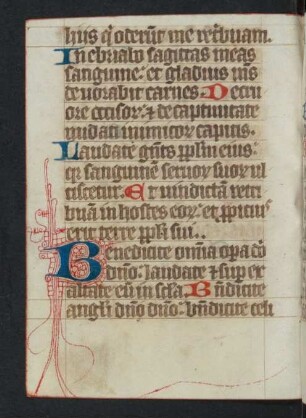 hijs q̄ oderūt me retbuam.
Inebriabo sagittas meas
sanguine: et gladius m̄s
deuorabit carnes. De cru
ore occisoꝝ: ⁊ de captiuitate
nudati inimicoꝝ capitis.
Laudate gētes pplm̄ eius:
qꝛ sanguinē seruoꝝ suoꝝ vl
ciscetur. Et uindictā retri
buā in hostes eoꝝ: et ꝓpitius
erit terre ppl̄i sui.
Benedicite om̄ia oꝑa dn̄i
dn̄o: laudate ⁊ sup ex
altate eū in scl̄a. Bn̄dicite
angl̄i dn̄i dn̄o: bn̄dicite celi